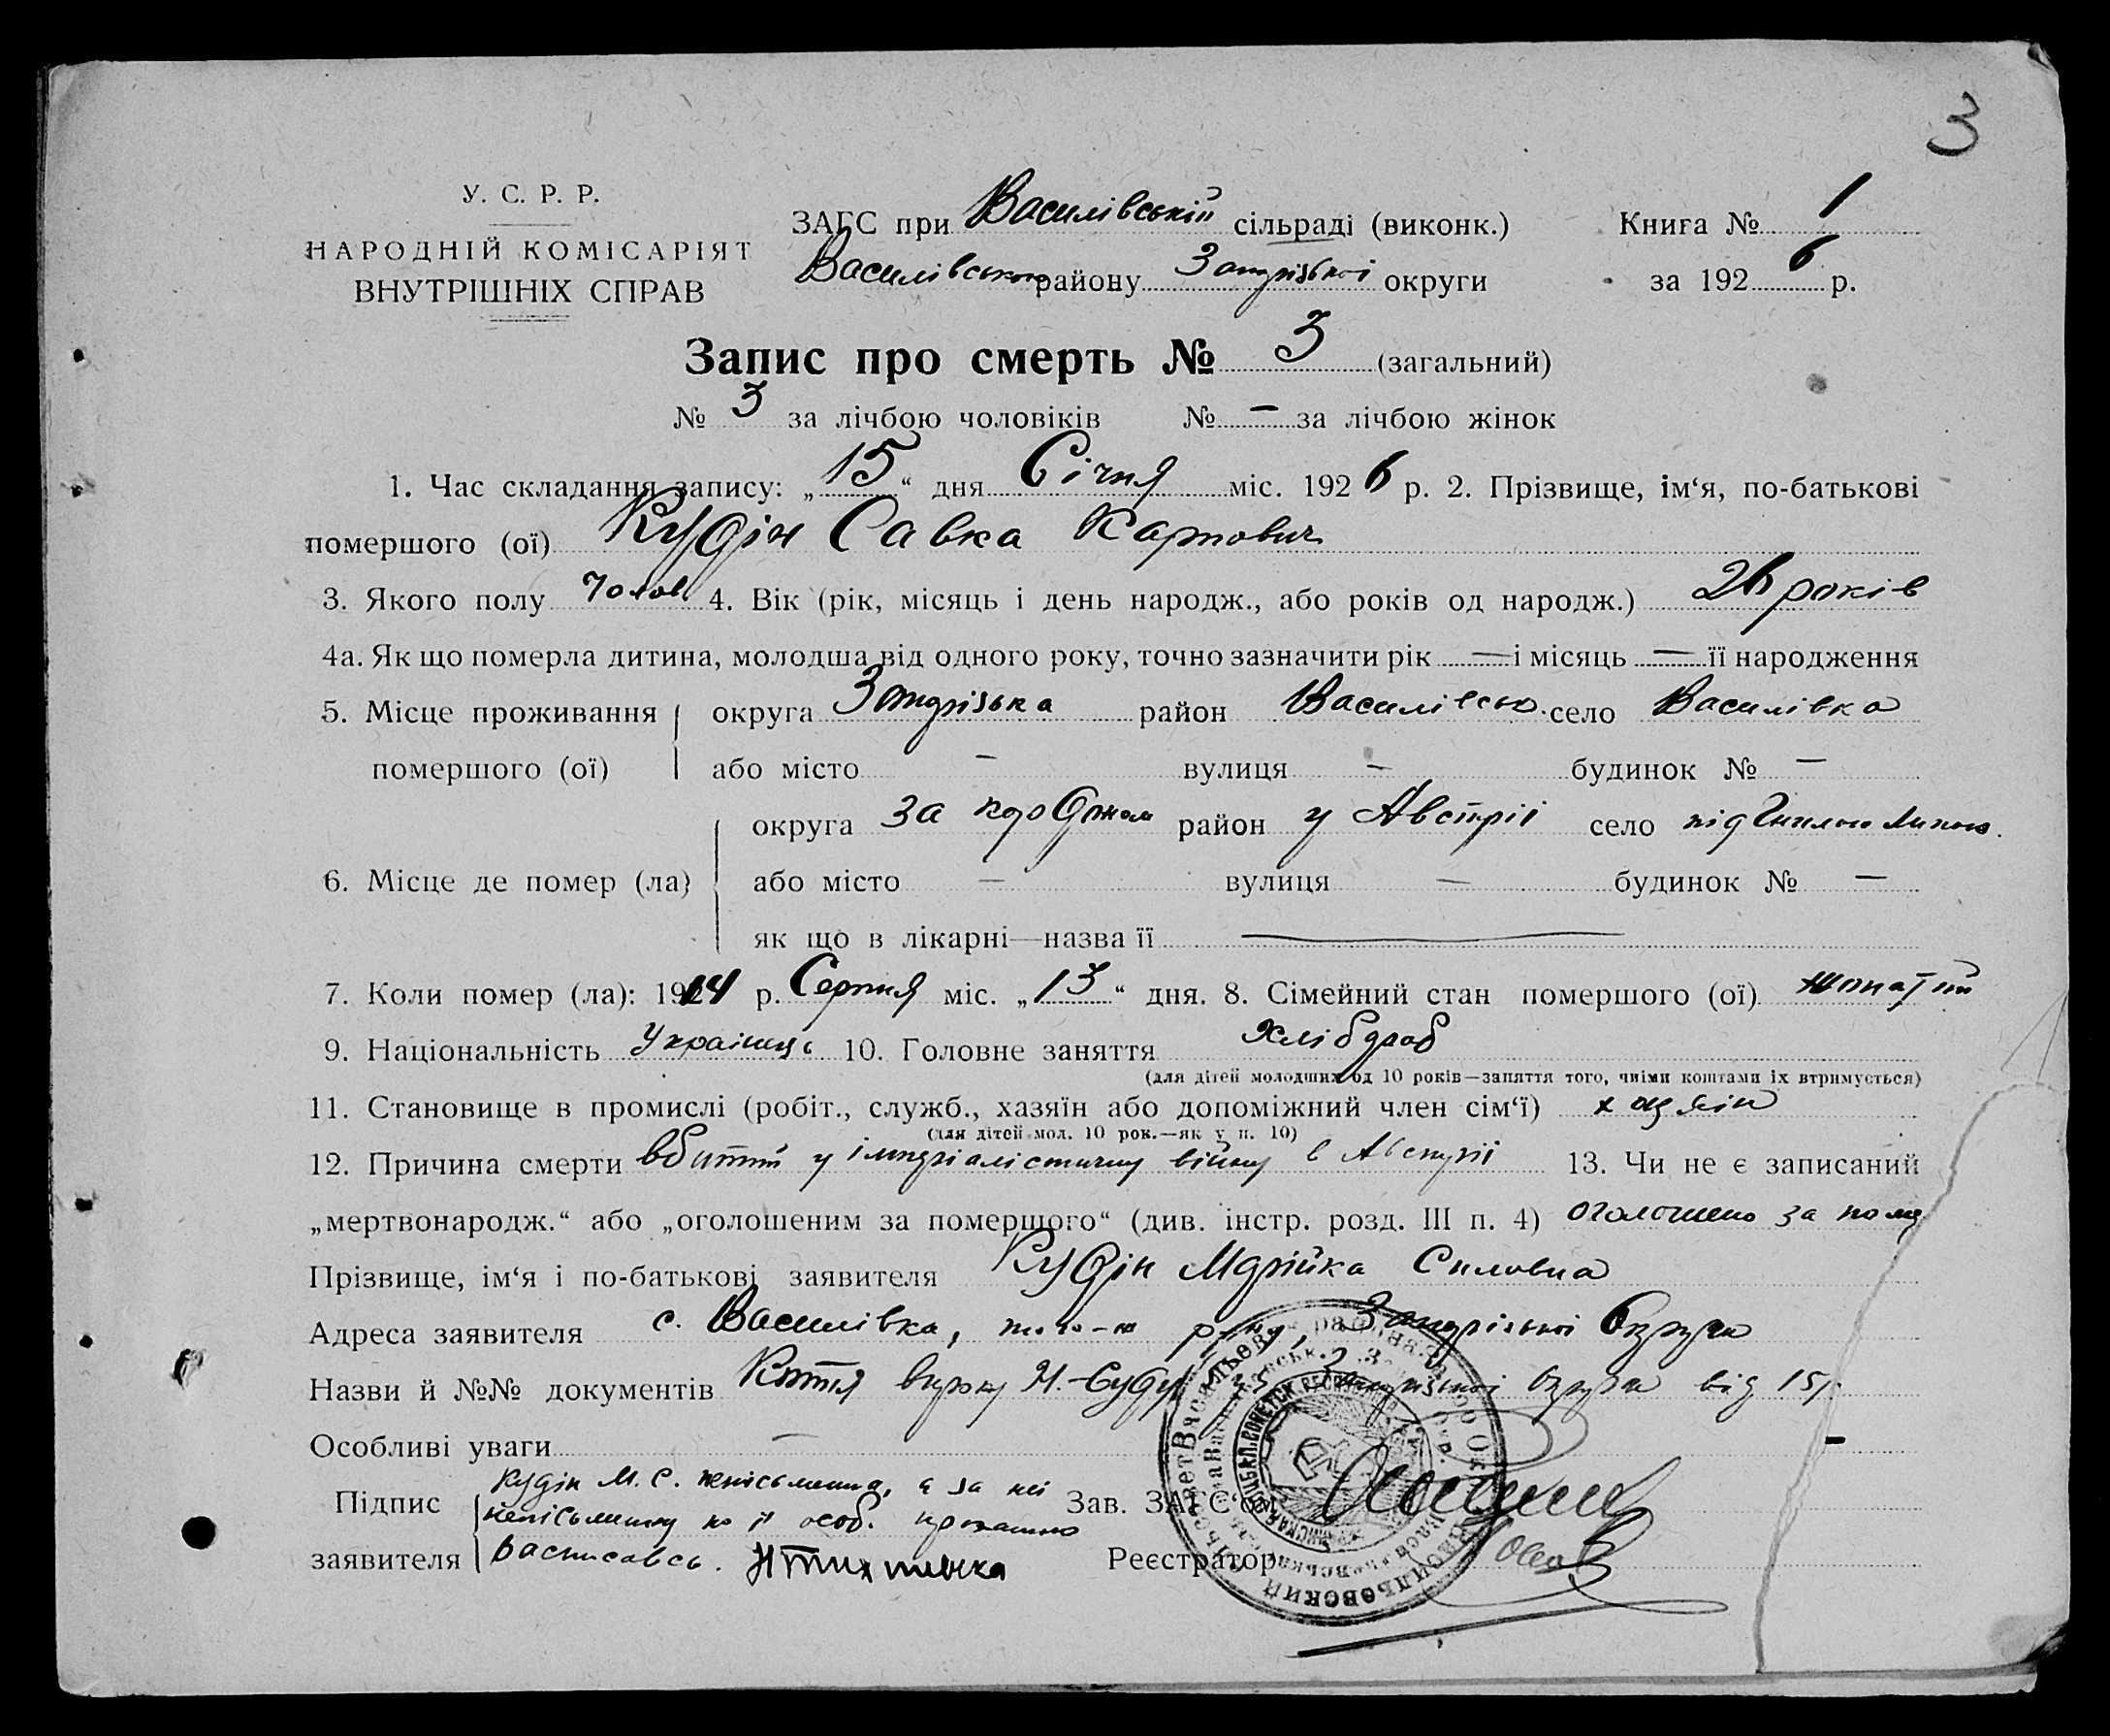 3
У. С. Р. Р.
НАРОДНІЙ КОМІСАРІЯТ
ВНУТРІШНІХ СПРАВ
ЗАГС при Василівській сільраді (виконк.)
Василівського району Запорізької округи
Книга № 1
за 1926 р.
Запис про смерть № 3 (загальний)
№ 3 за лічбою чоловіків № — за лічбою жінок
1. Час складання запису: „15“ дня Січня міс. 1926 р. 2. Прізвище, ім‘я, по-батькові
помершого (ої) Кудін Савка Карпович
3. Якого полу Чолов. 4. Вік (рік, місяць і день народж., або років од народж.) 26 років
4а. Як що померла дитина, молодша від одного року, точно зазначити рік — і місяць — її народження
5. Місце проживання округа Запорізька район Василівськ. село Василівка
помершого (ої) або місто — вулиця — будинок № —
округа за кордоном район у Австрії село під Гнилою Липою.
6. Місце де помер (ла) або місто — вулиця — будинок № —
як що в лікарні—назва її —
7. Коли помер (ла): 1914 р. Серпня міс. „13“ дня. 8. Сімейний стан помершого (ої) жонатий
9. Національність Українець 10. Головне заняття Хлібороб
(для дітей молодших од 10 років—заняття того, чиїми коштами їх втримується)
11. Становище в промислі (робіт., служб., хазяїн або допоміжний член сім‘ї) хазяїн
(для дітей мол. 10 рок.—як у п. 10)
12. Причина смерти вбитий у імперіалістичну війну в Австрії 13. Чи не є записаний
„мертвонародж.“ або „оголошеним за помершого“ (див. інстр. розд. III п. 4) оголошено за поме
Прізвище, ім‘я і по-батькові заявителя Кудін Марійка Силовна
Адреса заявителя с. Василівка, того-ж р-ну, Запорізької Округи
Назви й №№ документів Копія вироку Н.-Суду Запорізької Округи від 15/
Особливі уваги —
Підпис заявителя Кудін М. С. неписьменна, а за неї
неписьменну по її особ. проханню
расписавсь.
Зав. ЗАГС‘ом
Реєстратор